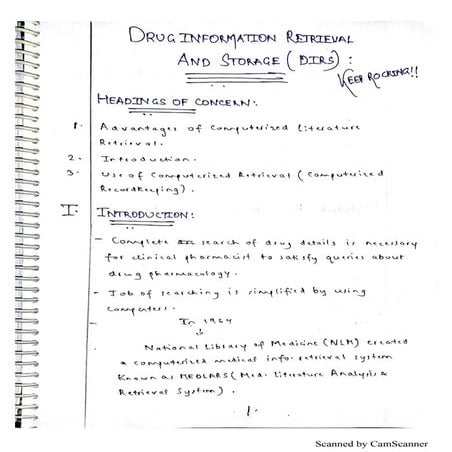 DRUG INFORMATION RETRIEVAL
AND STORAGE (DIRS) :
KEEP ROCKING!!
HEADINGS OF CONCERN:
1. Advantages of Computerized Literature
Retrieval.
2. Introduction.
3. Use of Computerized Retrieval (Computerized
Recordkeeping).
I. INTRODUCTION:
- Complete search of drug details is necessary
for clinical pharmacist to satisfy queries about
drug pharmacology.
- Job of searching is simplified by using
Computers.
In 1964
↓
National Library of Medicine (NLM) created
a computerized medical info. retrieval system
Known as MEDLARS (Med. Literature Analysis &
Retrieval System).
1.
Scanned by CamScanner